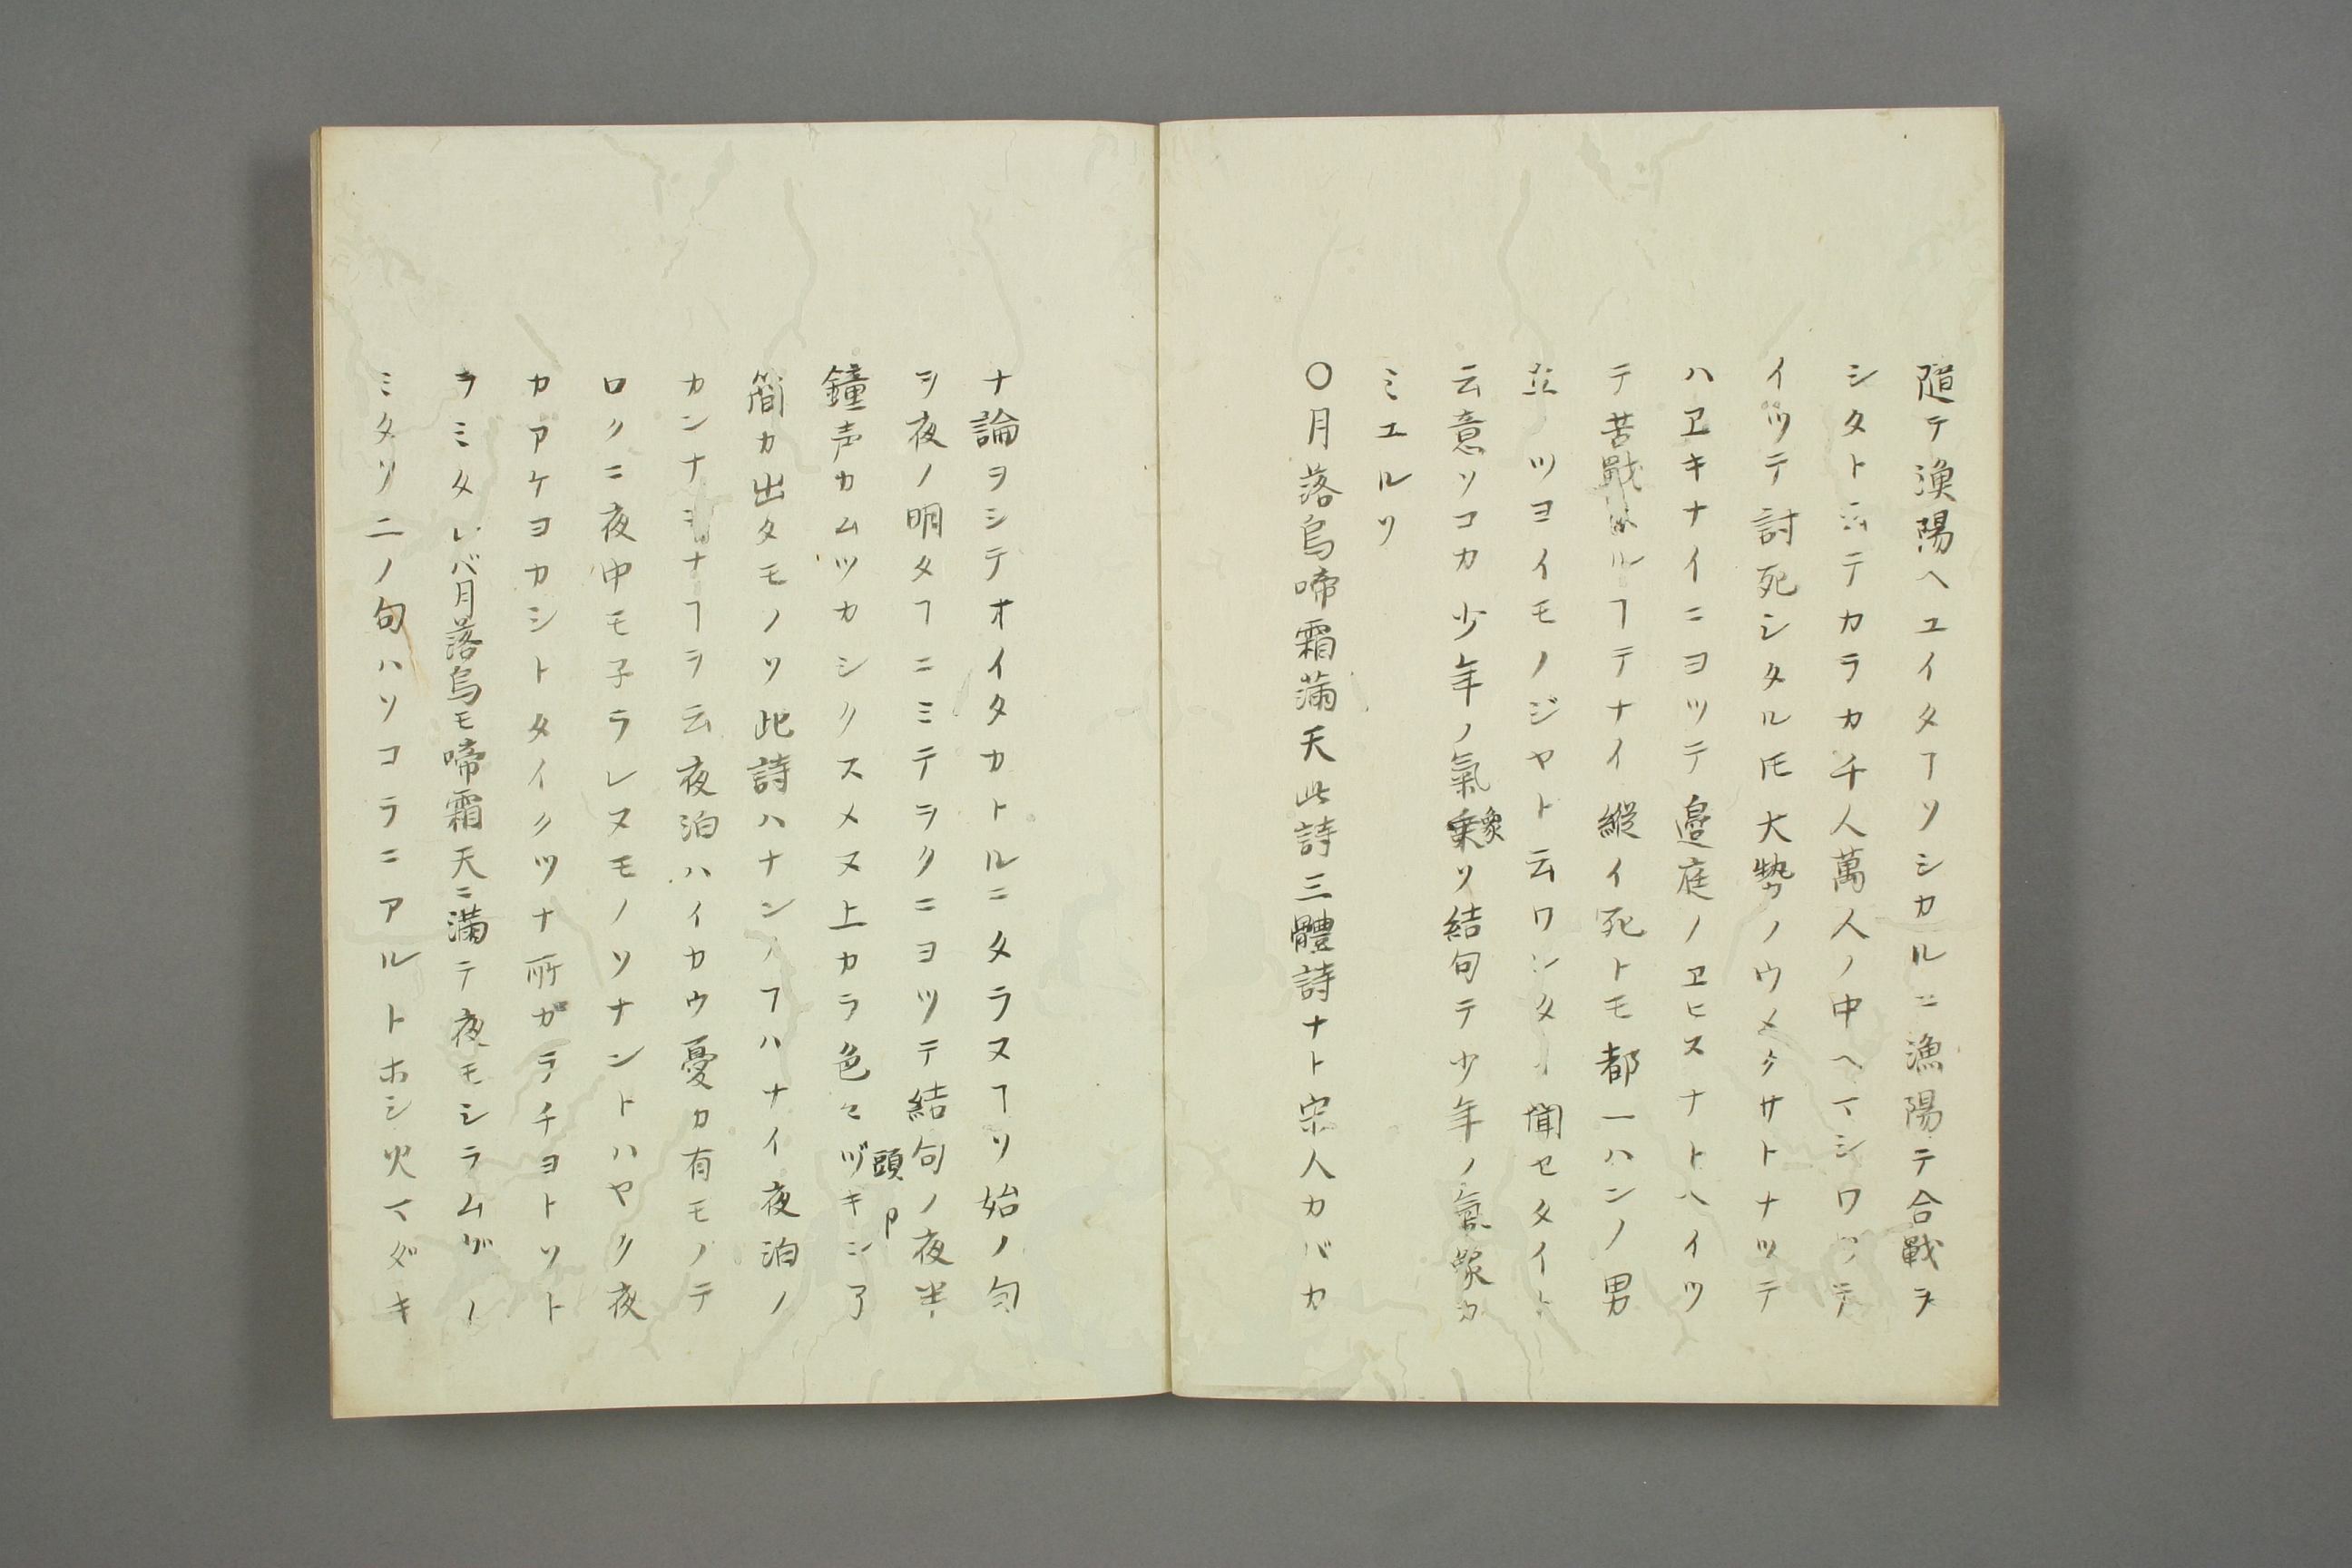 隨テ漁陽ヘユイタヿソシカルニ漁陽テ合戰ヲ
シタト云テカラカ千人萬人ノ中ヘマシワツテ
イツテ討死シタル𪜈大勢ノウメクサトナツテ
ハヱキナイニヨツテ邉庭ノヱヒスナトヘイツ
テ苦戰スルヿテナイ縱イ死トモ都一ハンノ男
立ツヨイモノジヤト云ワンタ聞セタイト
云意ソコカ少年ノ氣乗象ソ結句テ少年ノ氣象カ
ミエルソ
〇月落烏啼霜滿天此詩三體詩ナト宗人カバカ
ナ論ヲシテオイタカトルニタラヌヿソ始ノ句
ヲ夜ノ明タヿニミテヲクニヨツテ結句ノ夜半
鐘声カムツカシクスメヌ上カラ色〻ヅキン了
頭巾
簡カ出タモノソ此詩ハナンノヿハナイ夜泊ノ
カンナシナヿヲ云夜泊ハイカウ憂カ有モノテ
ロクニ夜中モ子ラレヌモノソナントハヤク夜
カアケヨカシトタイクツナ所ガラチヨトソト
ヲミタレバ月落烏モ啼霜天ニ滿テ夜モシラムガノ
ミタソ二ノ句ハソコラニアルトホシ火マダキ